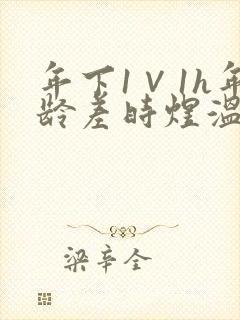 年下1∨1h年
龄差時煌溫
梁辛全